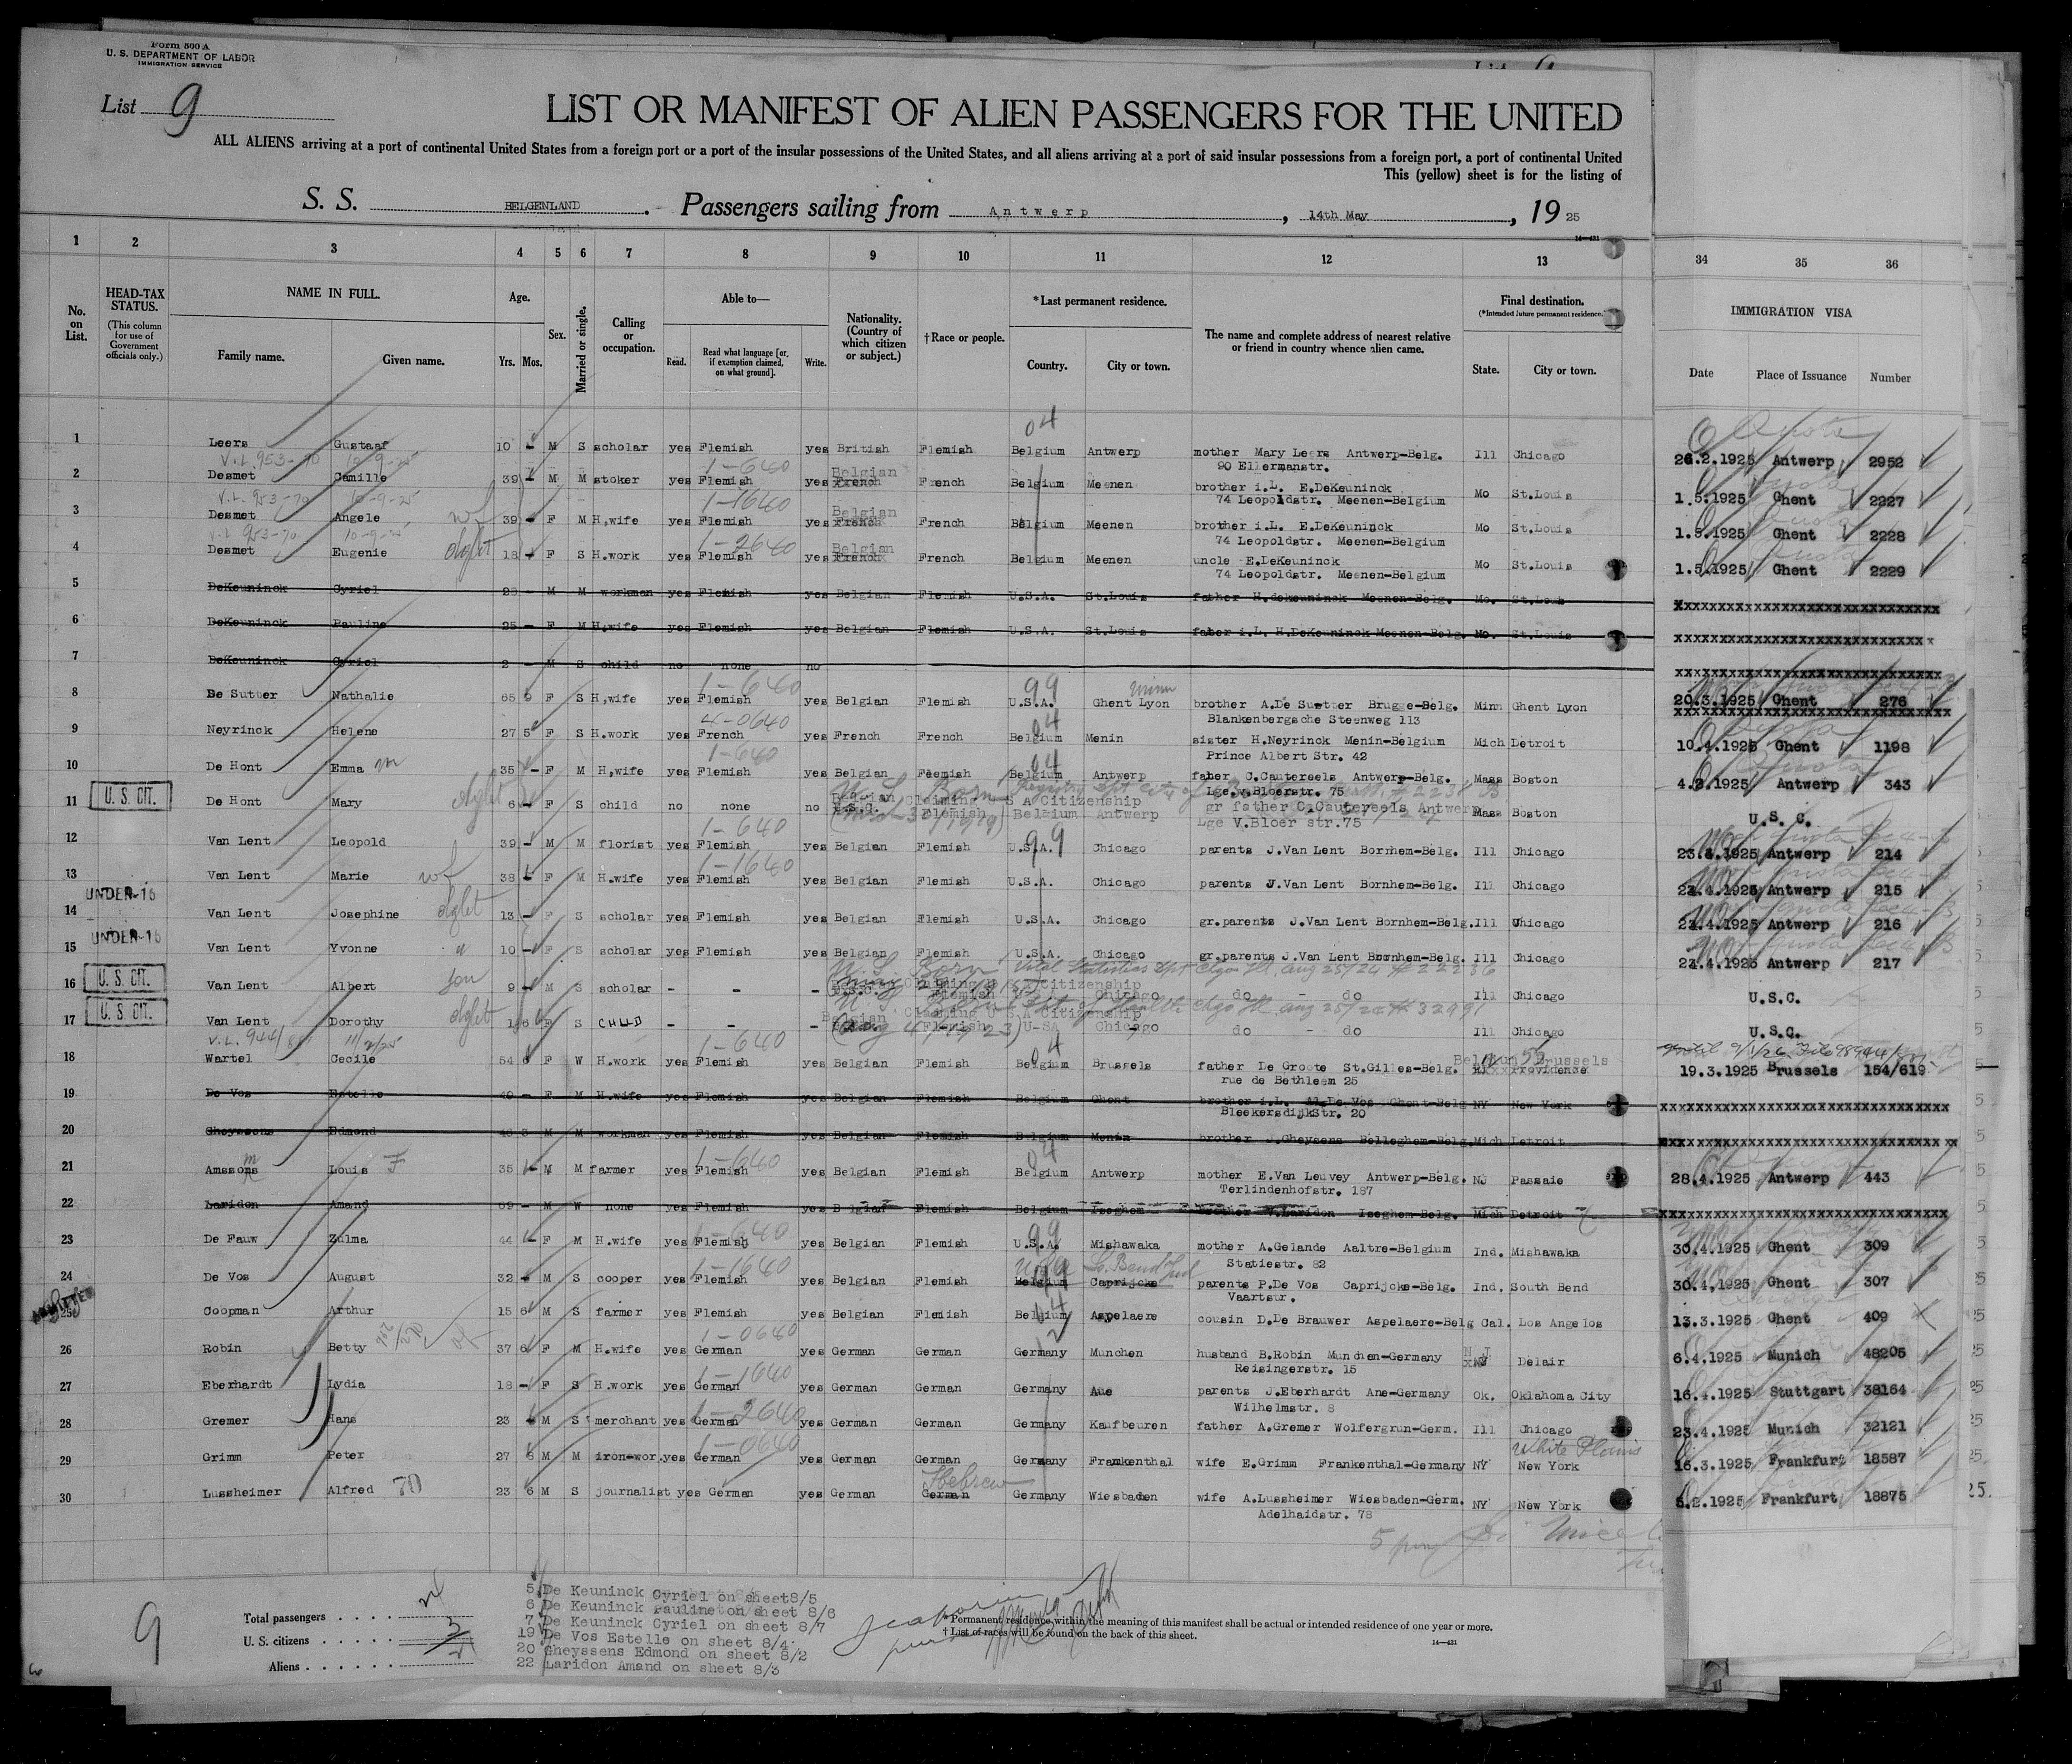 Form 500 A
U. S. DEPARTMENT OF LABOR
IMMIGRATION SERVICE
List 9
LIST OR MANIFEST OF ALIEN PASSENGERS FOR THE UNITED
ALL ALIENS arriving at a port of continental United States from a foreign port or a port of the insular possessions of the United States, and all aliens arriving at a port of said insular possessions from a foreign port, a port of continental United
This (yellow) sheet is for the listing of
S. S. BELGENLAND. Passengers sailing from Antwerp, 14th May, 19 25
14—431
1 2 3 4 5 6 7 8 9 10 11 12 13 34 35 36
No. on List.
HEAD-TAX STATUS.
(This column for use of Government officials only.)
NAME IN FULL.
Family name. Given name.
Age.
Yrs. Mos.
Sex.
Married or single.
Calling or occupation.
Able to—
Read. Read what language [or, if exemption claimed, on what ground]. Write.
Nationality. (Country of which citizen or subject.)
†Race or people.
*Last permanent residence.
Country. City or town.
The name and complete address of nearest relative or friend in country whence alien came.
Final destination.
(*Intended future permanent residence.)
State. City or town.
IMMIGRATION VISA
Date Place of Issuance Number
04
1 Leers Gustaaf 10 - M S scholar yes Flemish yes British Flemish Belgium Antwerp mother Mary Leers Antwerp-Belg. Ill Chicago 26.2.1925 Antwerp 2952
90 Ellermanstr.
V.L. 953-70 10-9-25 1-640 Belgian
2 Desmet Camille 39 - M M stoker yes Flemish yes French French Belgium Meenen brother i.L. E.DeKeuninck Mo St.Louis 1.5.1925 Ghent 2227
74 Leopoldstr. Meenen-Belgium
V.L. 953-70 10-9-25 1-1640 Belgian
3 Desmet Angele wf 39 - F M H.wife yes Flemish yes French French Belgium Meenen brother i.L. E.DeKeuninck Mo St.Louis 1.5.1925 Ghent 2228
74 Leopoldstr. Meenen-Belgium
V.L. 953-70 10-9-25 1-2640 Belgian
4 Desmet Eugenie dght 18 - F S H.work yes Flemish yes French French Belgium Meenen uncle E.DeKeuninck Mo St.Louis 1.5.1925 Ghent 2229
74 Leopoldstr. Meenen-Belgium
5 DeKeuninck Cyriel M M workman yes Flemish yes Belgian Flemish U.S.A. St.Louis father H.dekeuninck Meenen-Belg. Mo. St.Louis
6 DeKeuninck Pauline 25 - F M H,wife yes Flemish yes Belgian Flemish U.S.A. St.Louis father i.L. H.DeKeuninck Meenen-Belg. Mo. St.Louis
7 DeKeuninck Cyriel 2 - M S child no none no
1-640 99 Minn
8 De Sutter Nathalie 65 9 F S H,wife yes Flemish yes Belgian Flemish U.S.A. Ghent Lyon brother A.De Sutter Brugge-Belg. Minn Ghent Lyon 20.3.1925 Ghent 276
Blankenbergsche Steenweg 113
4-0640 04
9 Neyrinck Helene 27 5 F S H.work yes French yes French French Belgium Menin sister H.Neyrinck Menin-Belgium Mich Detroit 10.4.1925 Ghent 1198
Prince Albert Str. 42
1-640 04
10 De Hont Emma m 35 - F M H,wife yes Flemish yes Belgian Flemish Belgium Antwerp father C.Cautereels Antwerp-Belg. Mass Boston 4.2.1925 Antwerp 343
Lge.v.Bloerstr. 75
U. S. CIT.
11 De Hont Mary dght 6 - F S child no none no U.S.C. Flemish Belgium Antwerp gr father C.Cautereels Antwerp Mass Boston U. S. C.
Belgian Claiming U S A Citizenship
Lge V.Bloer str.75
1-640 99
12 Van Lent Leopold 39 - M M florist yes Flemish yes Belgian Flemish U.S.A. Chicago parents J.Van Lent Bornhem-Belg. Ill Chicago 23.4.1925 Antwerp 214
1-1640
13 Van Lent Marie wf 38 - F M H.wife yes Flemish yes Belgian Flemish U.S.A. Chicago parents J.Van Lent Bornhem-Belg. Ill Chicago 23.4.1925 Antwerp 215
UNDER-16
14 Van Lent Josephine dght 13 - F S scholar yes Flemish yes Belgian Flemish U.S.A. Chicago gr.parents J.Van Lent Bornhem-Belg. Ill Chicago 23.4.1925 Antwerp 216
UNDER-16
15 Van Lent Yvonne " 10 - F S scholar yes Flemish yes Belgian Flemish U.S.A. Chicago gr.parents J.Van Lent Bornhem-Belg. Ill Chicago 23.4.1925 Antwerp 217
U. S. CIT.
U.S. Born Vital Statistics Dpt Chgo Ill, aug 25/24 # 22236
16 Van Lent Albert son 9 - M S scholar - - - U.S.C. Flemish Chicago do - do Ill Chicago U.S.C.
U. S. CIT.
Belgian Claiming U S A Citizenship
17 Van Lent Dorothy dght 1 6 F S CHILD - - - Flemish U-SA Chicago do - do Ill Chicago U.S.C.
(Aug 4, 1923)
V.L. 944/ 11/2/25 1-640 04 Belgium Brussels
18 Wartel Cecile 54 6 F W H.work yes Flemish yes Belgian Flemish Belgium Brussels father De Groote St.Gilles-Belg. Providence 19.3.1925 Brussels 154/619
rue de Bethleem 25
19 De Vos Estelle 49 - F M H.wife yes Flemish yes Belgian Flemish Belgium Ghent brother i.L. Al.De Vos Ghent-Belg NY New York
BleekersdijkStr. 20
20 Gheyssens Edmond M M workman yes Flemish yes Belgian Flemish Belgium Menin brother J.Gheysens Belleghem-Belg. Mich Detroit
1-640 04
21 Amssoms Louis F 35 - M M farmer yes Flemish yes Belgian Flemish Belgium Antwerp mother E.Van Leuvey Antwerp-Belg. NJ Passaic 28.4.1925 Antwerp 443
Terlindenhofstr. 187
22 Laridon Amand 59 - M W none yes Flemish yes Belgian Flemish Belgium Iseghem brother V.Laridon Iseghem-Belg. Mich Detroit
1-640 99
23 De Fauw Zulma 44 - F M H.wife yes Flemish yes Belgian Flemish U.S.A. Mishawaka mother A.Gelande Aaltre-Belgium Ind. Mishawaka 30.4.1925 Ghent 309
Statiestr. 82
1-1640 USA S. Bend Ind
24 De Vos August 32 - M S cooper yes Flemish yes Belgian Flemish Belgium Caprijcke parents P.De Vos Caprijcke-Belg. Ind. South Bend 30.4.1925 Ghent 307
Vaartstr.
25 Coopman Arthur 15 6 M S farmer yes Flemish yes Belgian Flemish Belgium Aspelaere cousin D.De Brauwer Aspelaere-Belg Cal. Los Angelos 13.3.1925 Ghent 409
1-0640
26 Robin Betty 37 6 F M H.wife yes German yes German German Germany Munchen husband B.Robin Munchen-Germany N J Delair 6.4.1925 Munich 48205
Reisingerstr. 15
1-1640
27 Eberhardt Lydia 18 - F S H.work yes German yes German German Germany Aue parents J.Eberhardt Ane-Germany Ok. Oklahoma City 16.4.1925 Stuttgart 38164
Wilhelmstr. 8
1-2640
28 Gremer Hans 23 - M S merchant yes German yes German German Germany Kaufbeuren father A.Gremer Wolfergrun-Germ. Ill Chicago 23.4.1925 Munich 32121
1-0640 White Plains
29 Grimm Peter 27 6 M M iron-wor. yes German yes German German Germany Frankenthal wife E.Grimm Frankenthal-Germany NY New York 16.3.1925 Frankfurt 18587
Hebrew
30 Lussheimer Alfred 23 6 M S journalist yes German yes German German Germany Wiesbaden wife A.Lussheimer Wiesbaden-Germ. NY New York 5.2.1925 Frankfurt 18875
Adelhaidstr. 78
9
Total passengers
U. S. citizens 3
Aliens
5 De Keuninck Cyriel on sheet8/5
6 De Keuninck Pauline on sheet 8/6
7 De Keuninck Cyriel on sheet 8/7
19 De Vos Estelle on sheet 8/4
20 Gheyssens Edmond on sheet 8/2
22 Laridon Amand on sheet 8/3
*Permanent residence within the meaning of this manifest shall be actual or intended residence of one year or more.
†List of races will be found on the back of this sheet.
14—431